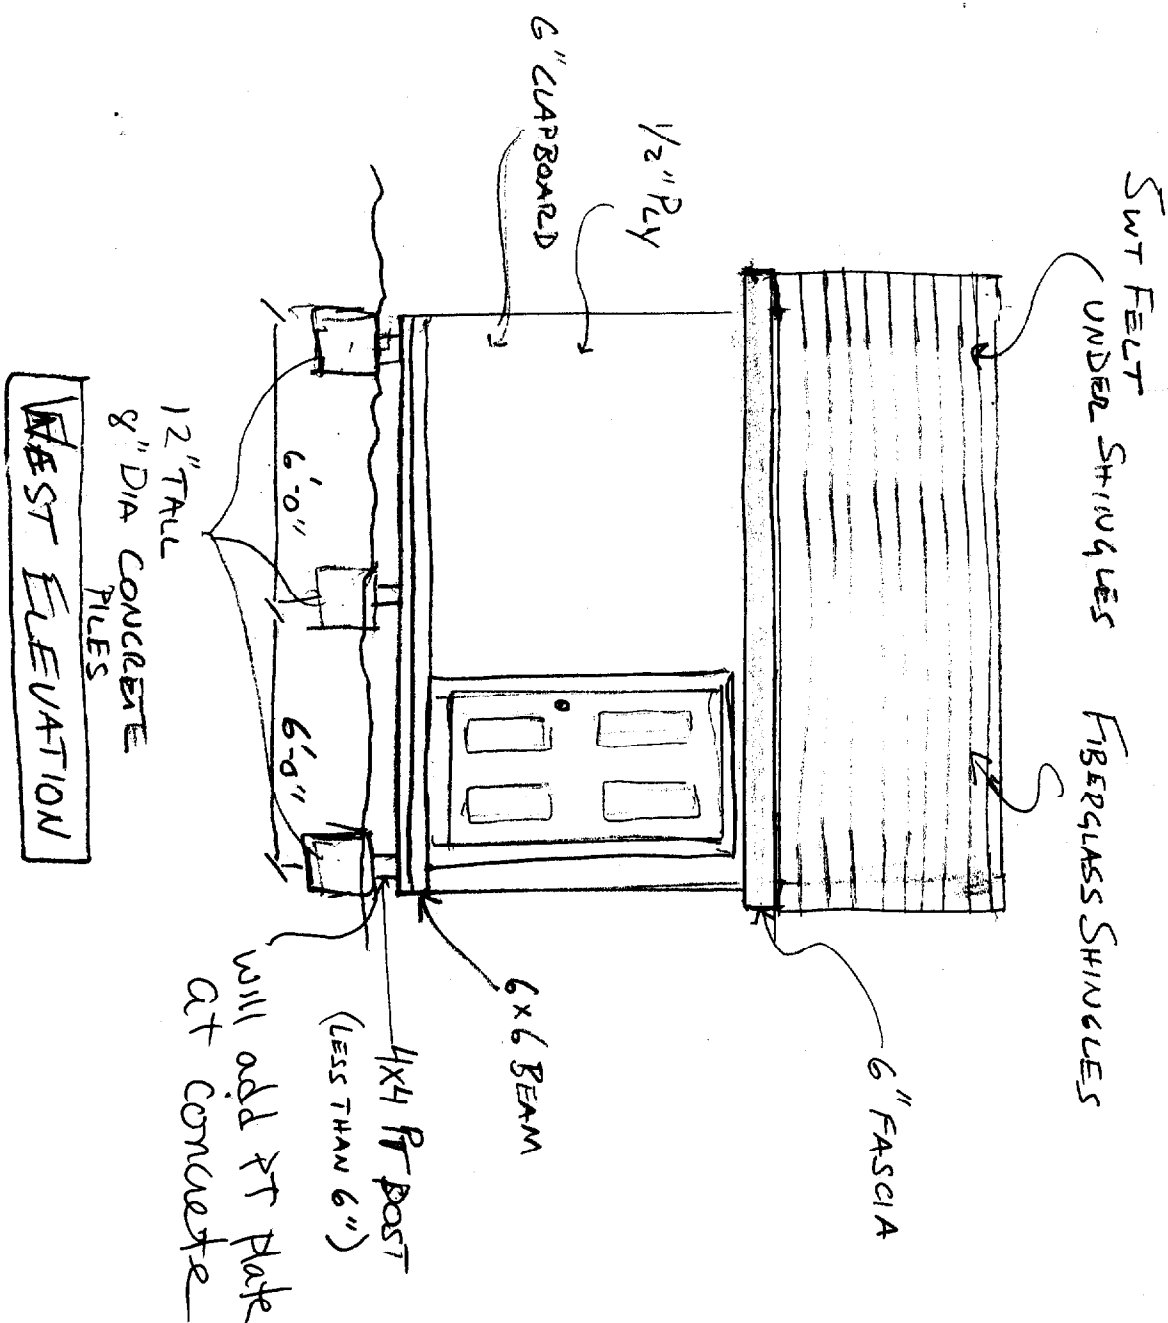 5WT FELT
UNDER SHINGLES
FIBERGLASS SHINGLES
6" FASCIA
1/2" PLY
6" CLAPBOARD
6x6 BEAM
4x4 PT POST
(LESS THAN 6")
will add PT Plate
at concrete
6'-0"
6'-0"
12" TALL
8" DIA CONCRETE
PILES
WEST ELEVATION